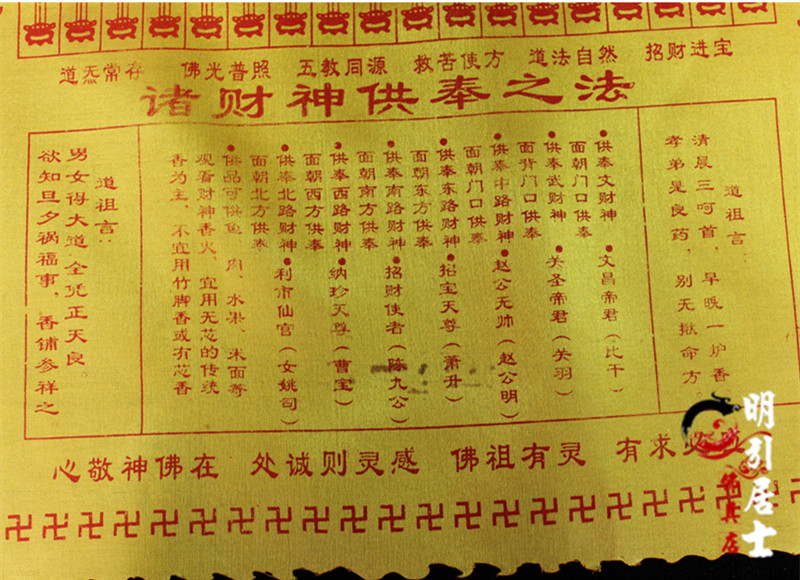 道炁常存 佛光普照 五教同源 救苦使方 道法自然 招财进宝
诸财神供奉之法
道祖言：
清晨三呵首，早晚一炉香
孝弟是良药，别无揪命方
●供奉文财神●文昌帝君（比干）
面朝门口供奉
●供奉武财神●关圣帝君（关羽）
面背门口供奉
●供奉中路财神●赵公无帅（赵公明）
面朝门口供奉
●供奉东路财神●招宝天尊（萧升）
面朝东方供奉
●供奉南路财神●招财使者（陈九公）
面朝南方供奉
●供奉西路财神●纳珍天尊（曹宝）
面朝西方供奉
●供奉北路财神●利市仙官（女姚司）
面朝北方供奉
●供品可供鱼、肉、水果、米面等
观看财神香火，宜用无芯的传统
香为主，不宜用竹脚香或有芯香
道祖言：
男女得大道，全凭正天良。
欲知旦夕祸福事，香铺参祥之
心敬神佛在 处诚则灵感 佛祖有灵 有求必
明引居士